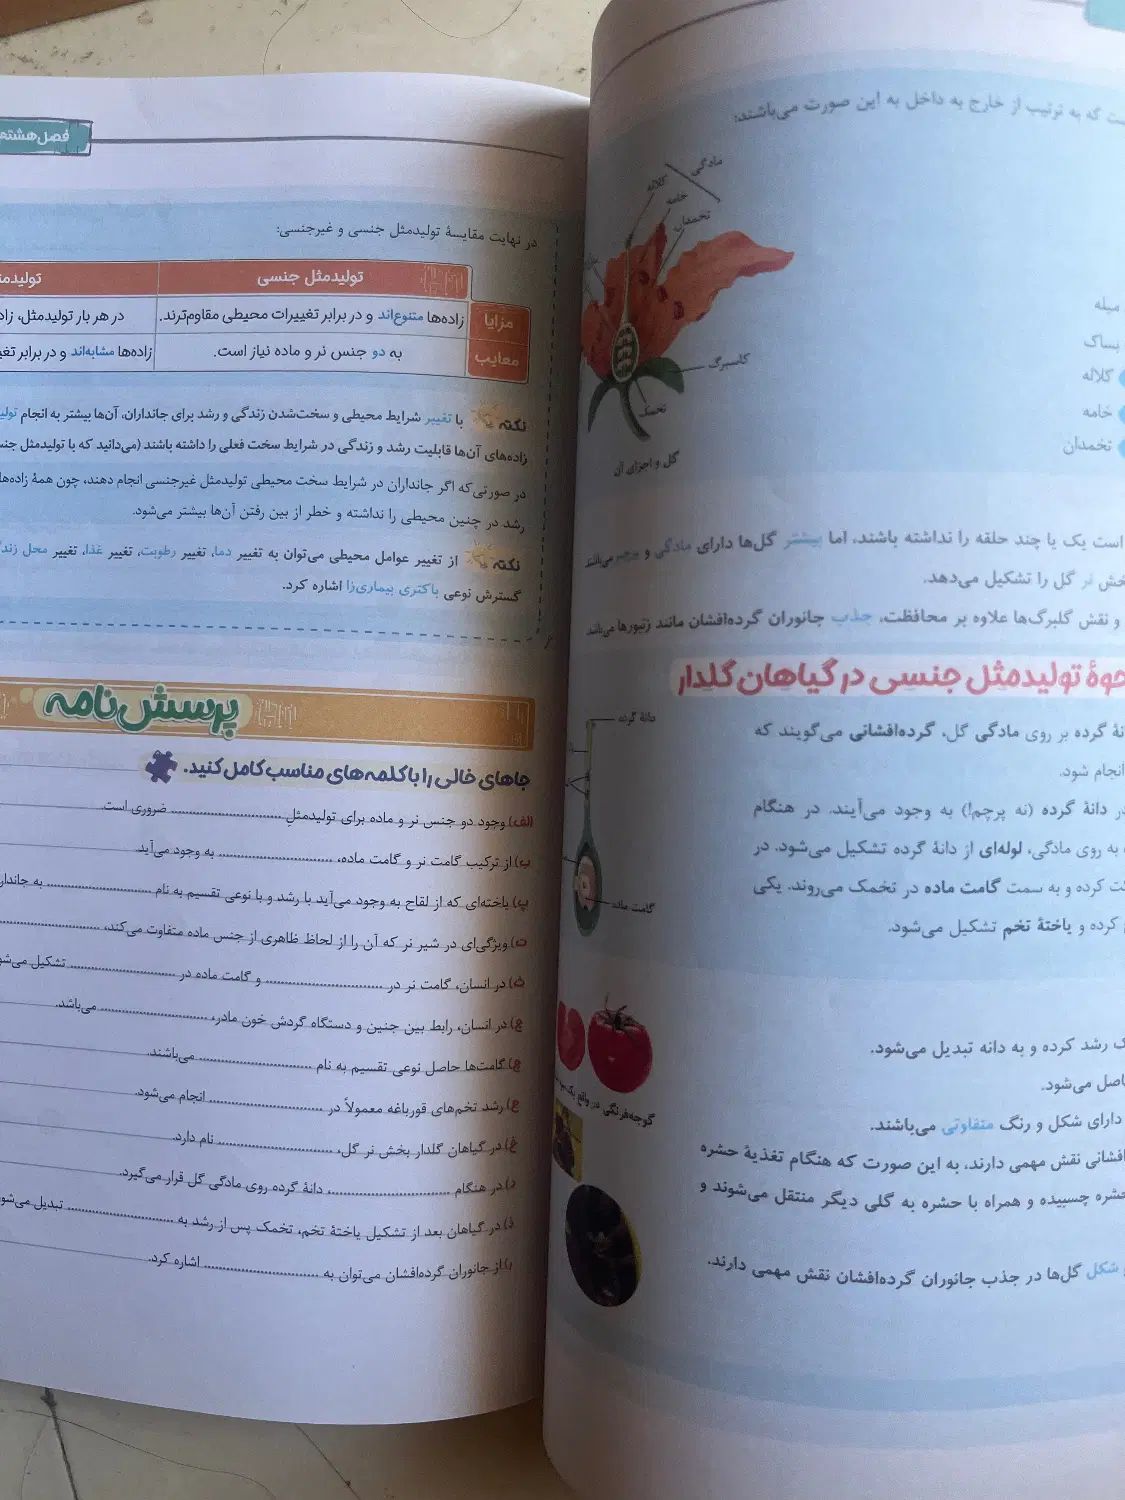 ست که به ترتیب از خارج به داخل به این صورت می‌باشند:
مادگی
کلاله
خامه
تخمدان
میله
بساک
کاسبرگ
کلاله
تخمک
خامه
تخمدان
گل و اجزای آن
است یک یا چند حلقه را نداشته باشند، اما بیشتر گل‌ها دارای مادگی و پرچم می‌باشند
خش نر گل را تشکیل می‌دهد.
و نقش گلبرگ‌ها علاوه بر محافظت، جذب جانوران گرده‌افشان مانند زنبورها می‌باشد
حوهٔ تولیدمثل جنسی در گیاهان گلدار
انهٔ گرده بر روی مادگی گل، گرده‌افشانی می‌گویند که
دانهٔ گرده
انجام شود.
ر دانهٔ گرده (نه پرچم!) به وجود می‌آیند. در هنگام
ه به روی مادگی، لوله‌ای از دانهٔ گرده تشکیل می‌شود. در
کت کرده و به سمت گامت ماده در تخمک می‌روند. یکی
گامت ماده
کرده و یاختهٔ تخم تشکیل می‌شود.
ک رشد کرده و به دانه تبدیل می‌شود.
اصل می‌شود.
گوجه‌فرنگی در واقع یک
دارای شکل و رنگ متفاوتی می‌باشند.
افشانی نقش مهمی دارند، به این صورت که هنگام تغذیهٔ حشره
حشره چسبیده و همراه با حشره به گلی دیگر منتقل می‌شوند و
شکل گل‌ها در جذب جانوران گرده‌افشان نقش مهمی دارند.
فصل هشتم
در نهایت مقایسهٔ تولیدمثل جنسی و غیرجنسی:
تولیدمثل جنسی تولیدم
مزایا زاده‌ها متنوع‌اند و در برابر تغییرات محیطی مقاوم‌ترند. در هر بار تولیدمثل، زاد
معایب به دو جنس نر و ماده نیاز است. زاده‌ها مشابه‌اند و در برابر تغی
نکته با تغییر شرایط محیطی و سخت‌شدن زندگی و رشد برای جانداران، آن‌ها بیشتر به انجام تولی
زاده‌های آن‌ها قابلیت رشد و زندگی در شرایط سخت فعلی را داشته باشند (می‌دانید که با تولیدمثل جنس
در صورتی‌که اگر جانداران در شرایط سخت محیطی تولیدمثل غیرجنسی انجام دهند، چون همهٔ زاده‌ها
رشد در چنین محیطی را نداشته و خطر از بین رفتن آن‌ها بیشتر می‌شود.
نکته از تغییر عوامل محیطی می‌توان به تغییر دما، تغییر رطوبت، تغییر غذا، تغییر محل زندگ
گسترش نوعی باکتری بیماری‌زا اشاره کرد.
پرسش‌نامه
جاهای خالی را با کلمه‌های مناسب کامل کنید.
الف) وجود دو جنس نر و ماده برای تولیدمثلِ .............................. ضروری است.
ب) از ترکیب گامت نر و گامت ماده، .............................. به وجود می‌آید.
پ) یاخته‌ای که از لقاح به وجود می‌آید با رشد و با نوعی تقسیم به نام .............................. به جاندار
ت) ویژگی‌ای در شیر نر که آن را از لحاظ ظاهری از جنس ماده متفاوت می‌کند، ..............................
ث) در انسان، گامت نر در .............................. و گامت ماده در .............................. تشکیل می‌شو
ج) در انسان، رابط بین جنین و دستگاه گردش خون مادر، .............................. می‌باشد.
چ) گامت‌ها حاصل نوعی تقسیم به نام .............................. می‌باشند.
ح) رشد تخم‌های قورباغه معمولاً در .............................. انجام می‌شود.
خ) در گیاهان گلدار بخش نر گل، .............................. نام دارد.
د) در هنگام .............................. دانهٔ گرده روی مادگی گل قرار می‌گیرد.
ذ) در گیاهان بعد از تشکیل یاختهٔ تخم، تخمک پس از رشد به .............................. تبدیل می‌شو
ر) از جانوران گرده‌افشان می‌توان به .............................. اشاره کرد.